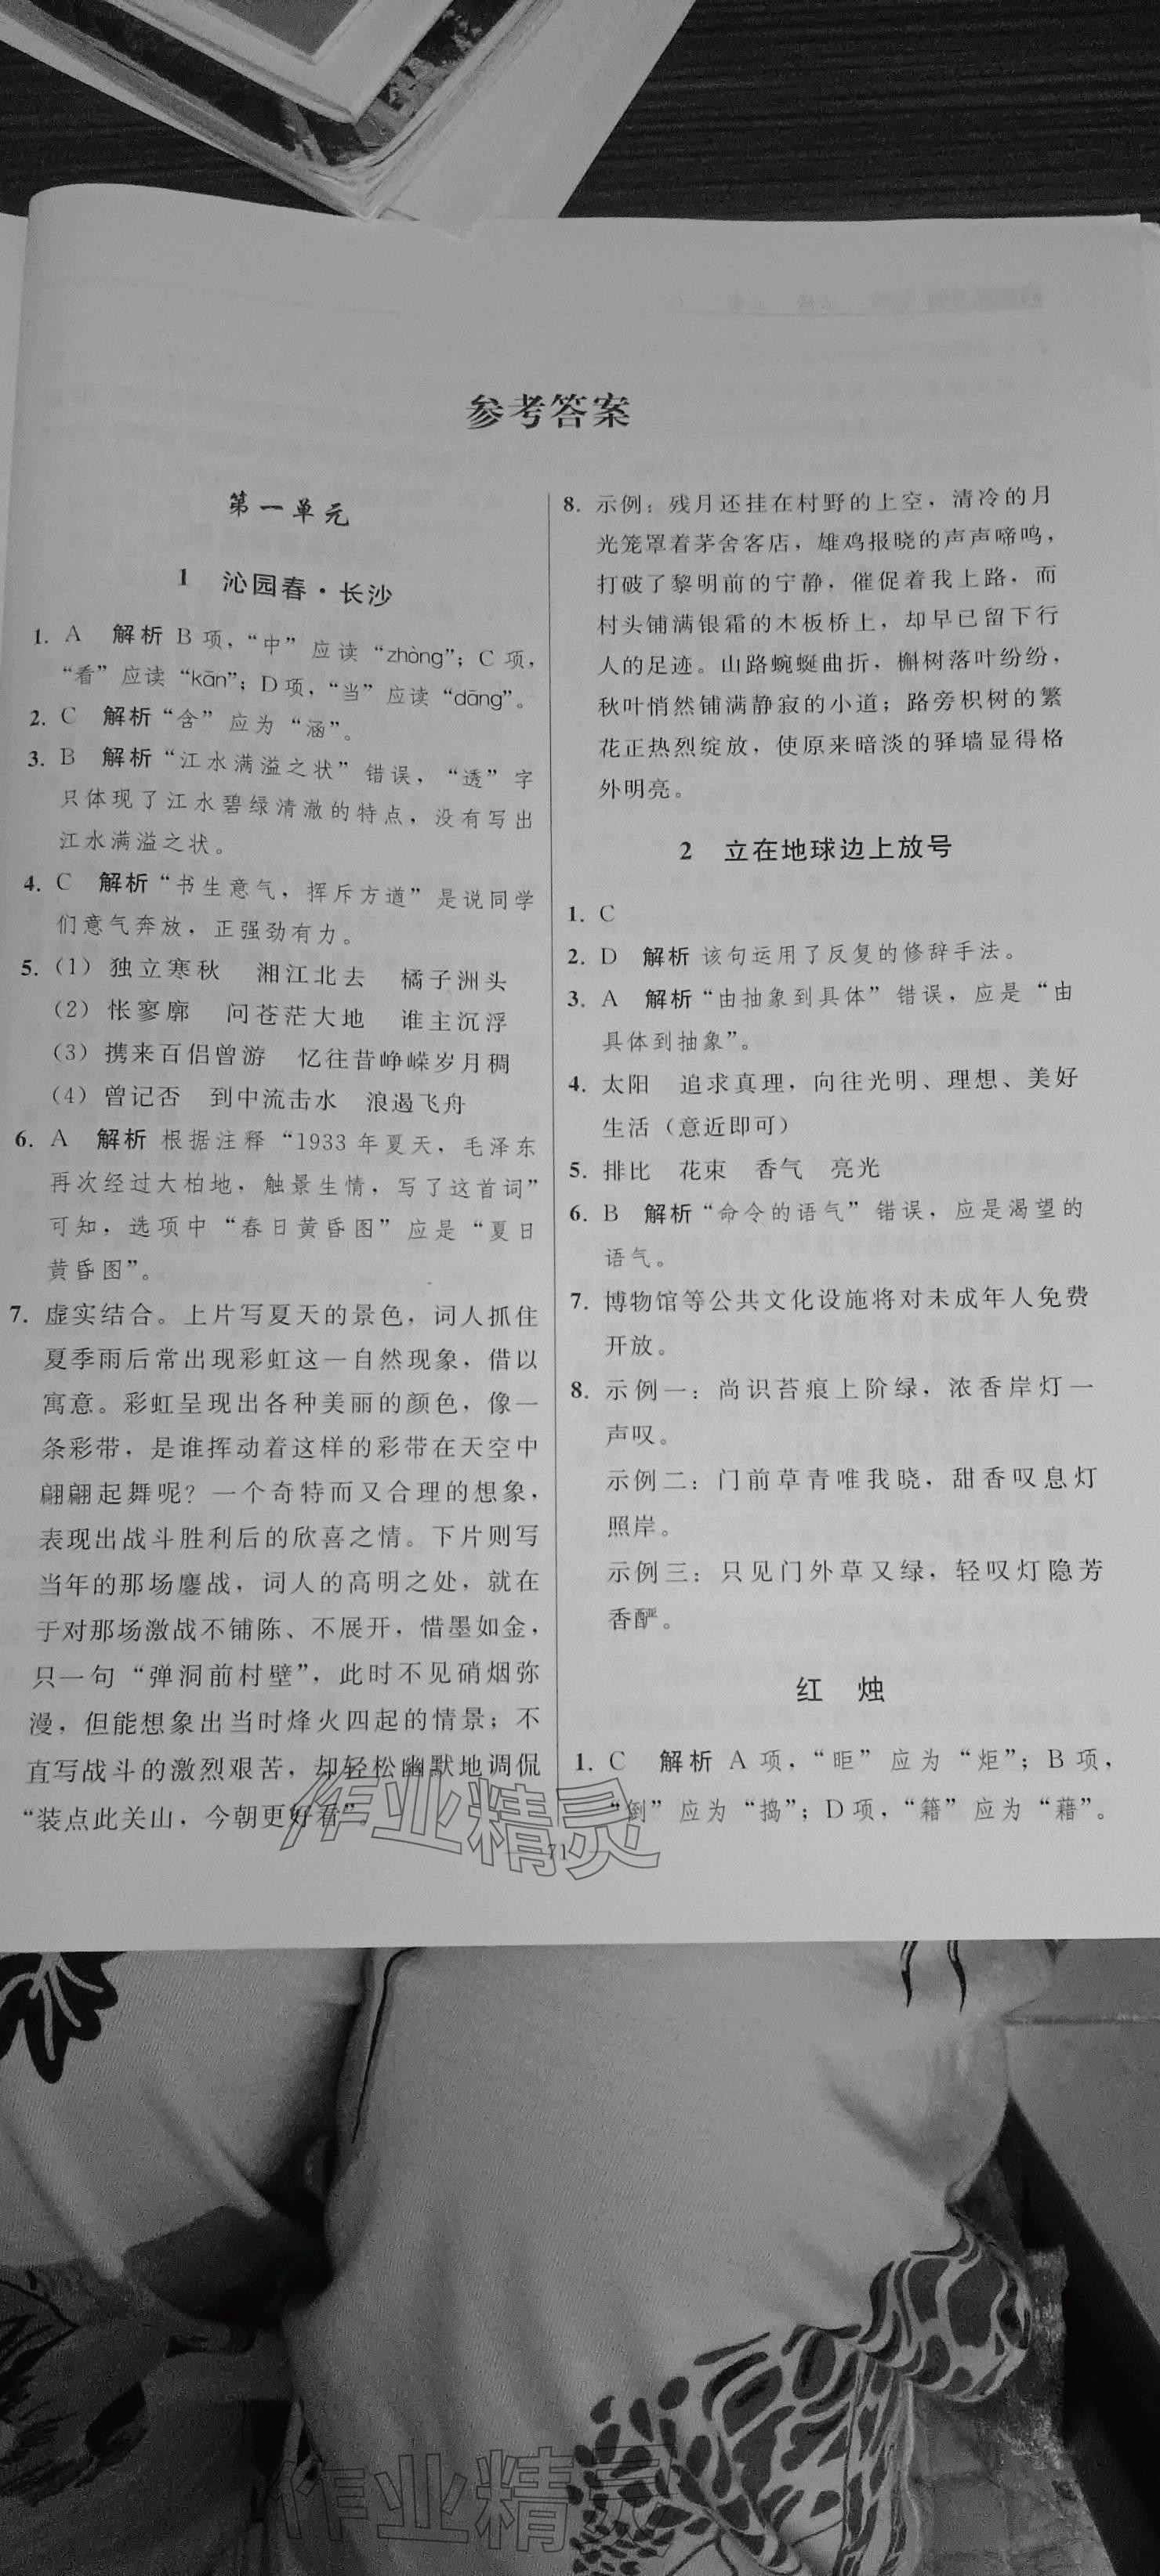 参考答案
第一单元
1 沁园春·长沙
1. A 解析 B 项，“中”应读“zhòng”；C 项，
“看”应读“kān”；D 项，“当”应读“dāng”。
2. C 解析 “含”应为“涵”。
3. B 解析 “江水满溢之状”错误，“透”字
只体现了江水碧绿清澈的特点，没有写出
江水满溢之状。
4. C 解析 “书生意气，挥斥方遒”是说同学
们意气奔放，正强劲有力。
5. (1) 独立寒秋 湘江北去 橘子洲头
(2) 怅寥廓 问苍茫大地 谁主沉浮
(3) 携来百侣曾游 忆往昔峥嵘岁月稠
(4) 曾记否 到中流击水 浪遏飞舟
6. A 解析 根据注释“1933 年夏天，毛泽东
再次经过大柏地，触景生情，写了这首词”
可知，选项中“春日黄昏图”应是“夏日
黄昏图”。
7. 虚实结合。上片写夏天的景色，词人抓住
夏季雨后常出现彩虹这一自然现象，借以
寓意。彩虹呈现出各种美丽的颜色，像一
条彩带，是谁挥动着这样的彩带在天空中
翩翩起舞呢？一个奇特而又合理的想象，
表现出战斗胜利后的欣喜之情。下片则写
当年的那场鏖战，词人的高明之处，就在
于对那场激战不铺陈、不展开，惜墨如金，
只一句“弹洞前村壁”，此时不见硝烟弥
漫，但能想象出当时烽火四起的情景；不
直写战斗的激烈艰苦，却轻松幽默地调侃
“装点此关山，今朝更好看”。
8. 示例：残月还挂在村野的上空，清冷的月
光笼罩着茅舍客店，雄鸡报晓的声声啼鸣，
打破了黎明前的宁静，催促着我上路，而
村头铺满银霜的木板桥上，却早已留下行
人的足迹。山路蜿蜒曲折，槲树落叶纷纷，
秋叶悄然铺满静寂的小道；路旁枳树的繁
花正热烈绽放，使原来暗淡的驿墙显得格
外明亮。
2 立在地球边上放号
1. C
2. D 解析 该句运用了反复的修辞手法。
3. A 解析 “由抽象到具体”错误，应是“由
具体到抽象”。
4. 太阳 追求真理，向往光明、理想、美好
生活（意近即可）
5. 排比 花束 香气 亮光
6. B 解析 “命令的语气”错误，应是渴望的
语气。
7. 博物馆等公共文化设施将对未成年人免费
开放。
8. 示例一：尚识苔痕上阶绿，浓香岸灯一
声叹。
示例二：门前草青唯我晓，甜香叹息灯
照岸。
示例三：只见门外草又绿，轻叹灯隐芳
香酽。
红 烛
1. C 解析 A 项，“叵”应为“炬”；B 项，
“倒”应为“捣”；D 项，“籍”应为“藉”。
71
作业精灵
作业精灵